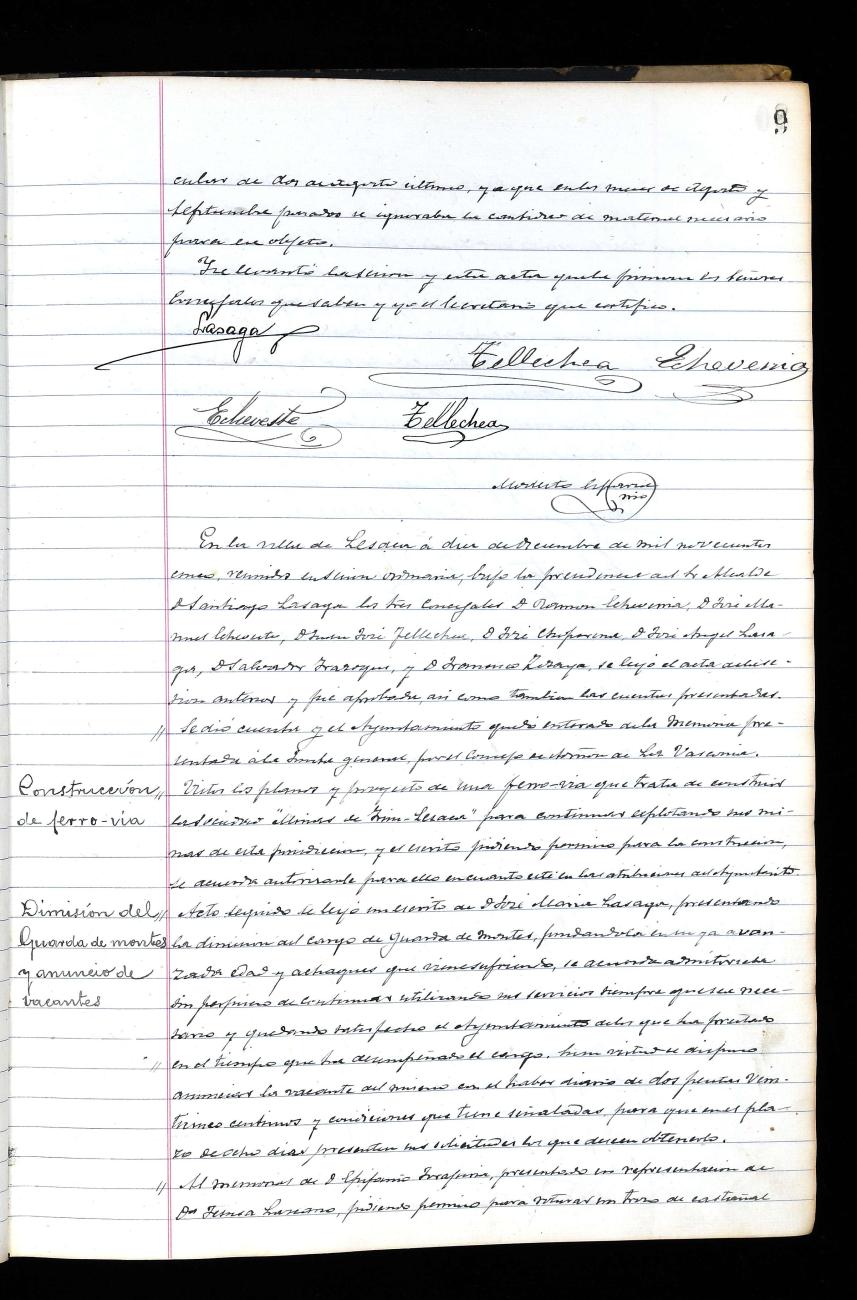 9
cular de dos de Agosto último, ya que en los meses de Agosto y
Septiembre pasados se ignoraba la cantidad de material necesario
para ese objeto.
Se levantó la sesion y esta acta que la firman los Señores
Concejales que saben y yo el Secretario que certifico.
Lasaga
Tellechea Echeverria
Echeveste Tellechea
Modesto
En la villa de Lesaca á diez de Diciembre de mil novecientos
cinco, reunidos en sesion ordinaria, bajo la presidencia del Sr Alcalde
D Santiago Lasaga los tres Concejales D Ramon Echeverria, D José Ma-
nuel Echeveste, D Juan José Tellechea, D José Choperena, D José Angel Lasa-
ga, D Salvador Irazoqui, y D Francisco Lizaya, se leyó el acta de la se-
sion anterior y fué aprobada, asi como tambien las cuentas presentadas.
// Se dió cuenta y el Ayuntamiento quedó enterado de la Memoria pre-
sentada á la Junta general, por el Consejo de Admon de La Vasconia.
Construcción // Vistos los planos y proyecto de una ferro-via que trata de construir
de ferro-via la Sociedad "Minas de Irún-Lesaca" para continuar esplotando sus mi-
nas de esta jurisdiccion, y el escrito pidiendo permiso para la construccion,
se acuerda autorizarle para ello en cuanto esté en las atribuciones del Ayuntamiento.
Dimisión del // Acto seguido se leyó un escrito de D José Maria Lasaga, presentando
Guarda de montes la dimision del cargo de Guarda de montes, fundandola en su ya avan-
y anuncio de zada edad y achaques que viene sufriendo, se acuerda admitirsela
vacantes sin perjuicio de continuar utilizando sus servicios siempre que sea nece-
sario y quedando satisfecho el Ayuntamiento de los que ha prestado
// en el tiempo que ha desempeñado el cargo. En su virtud se dispuso
anunciar la vacante del mismo con el haber diario de dos pesetas vein-
ticinco centimos y condiciones que tiene señaladas, para que en el pla-
zo de ocho dias presenten sus solicitudes los que deseen obtenerlo.
// Al memorial de D Epifanio, presentado en representacion de
Dª Teresa Lascano, pidiendo permiso para roturar un trozo de castañal